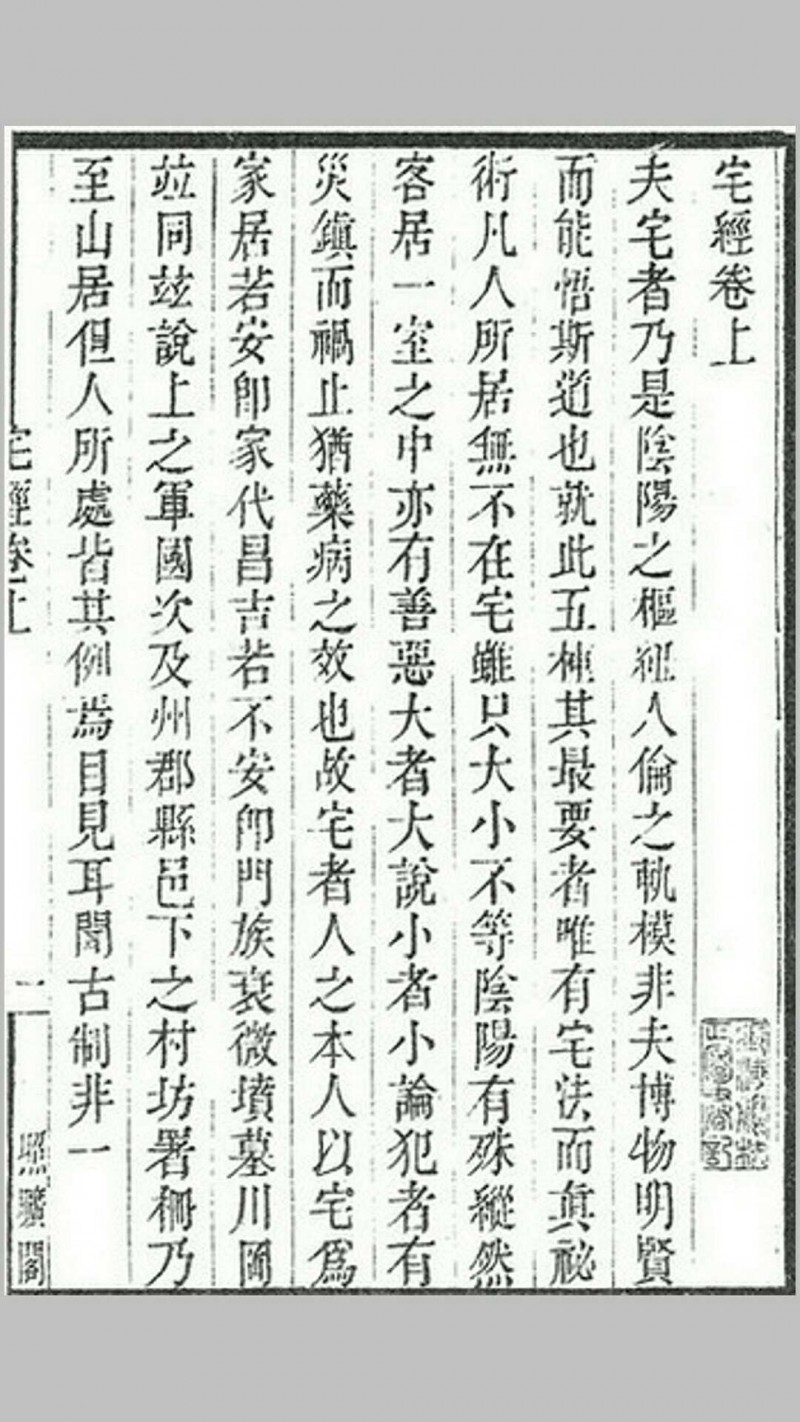 宅經卷上
夫宅者乃是陰陽之樞紐人倫之軌模非夫博物明賢
而能悟斯道也就此五種其最要者唯有宅法而眞祕
術凡人所居無不在宅雖只大小不等陰陽有殊縱然
客居一室之中亦有善惡大者大說小者小論犯者有
災鎮而禍止猶藥病之效也故宅者人之本人以宅爲
家居若安卽家代昌吉若不安卽門族衰微墳墓川岡
竝同兹說上之軍國次及州郡縣邑下之村坊署柵乃
至山居但人所處皆其例焉目見耳聞古制非一
宅經卷上
一
照曠閣